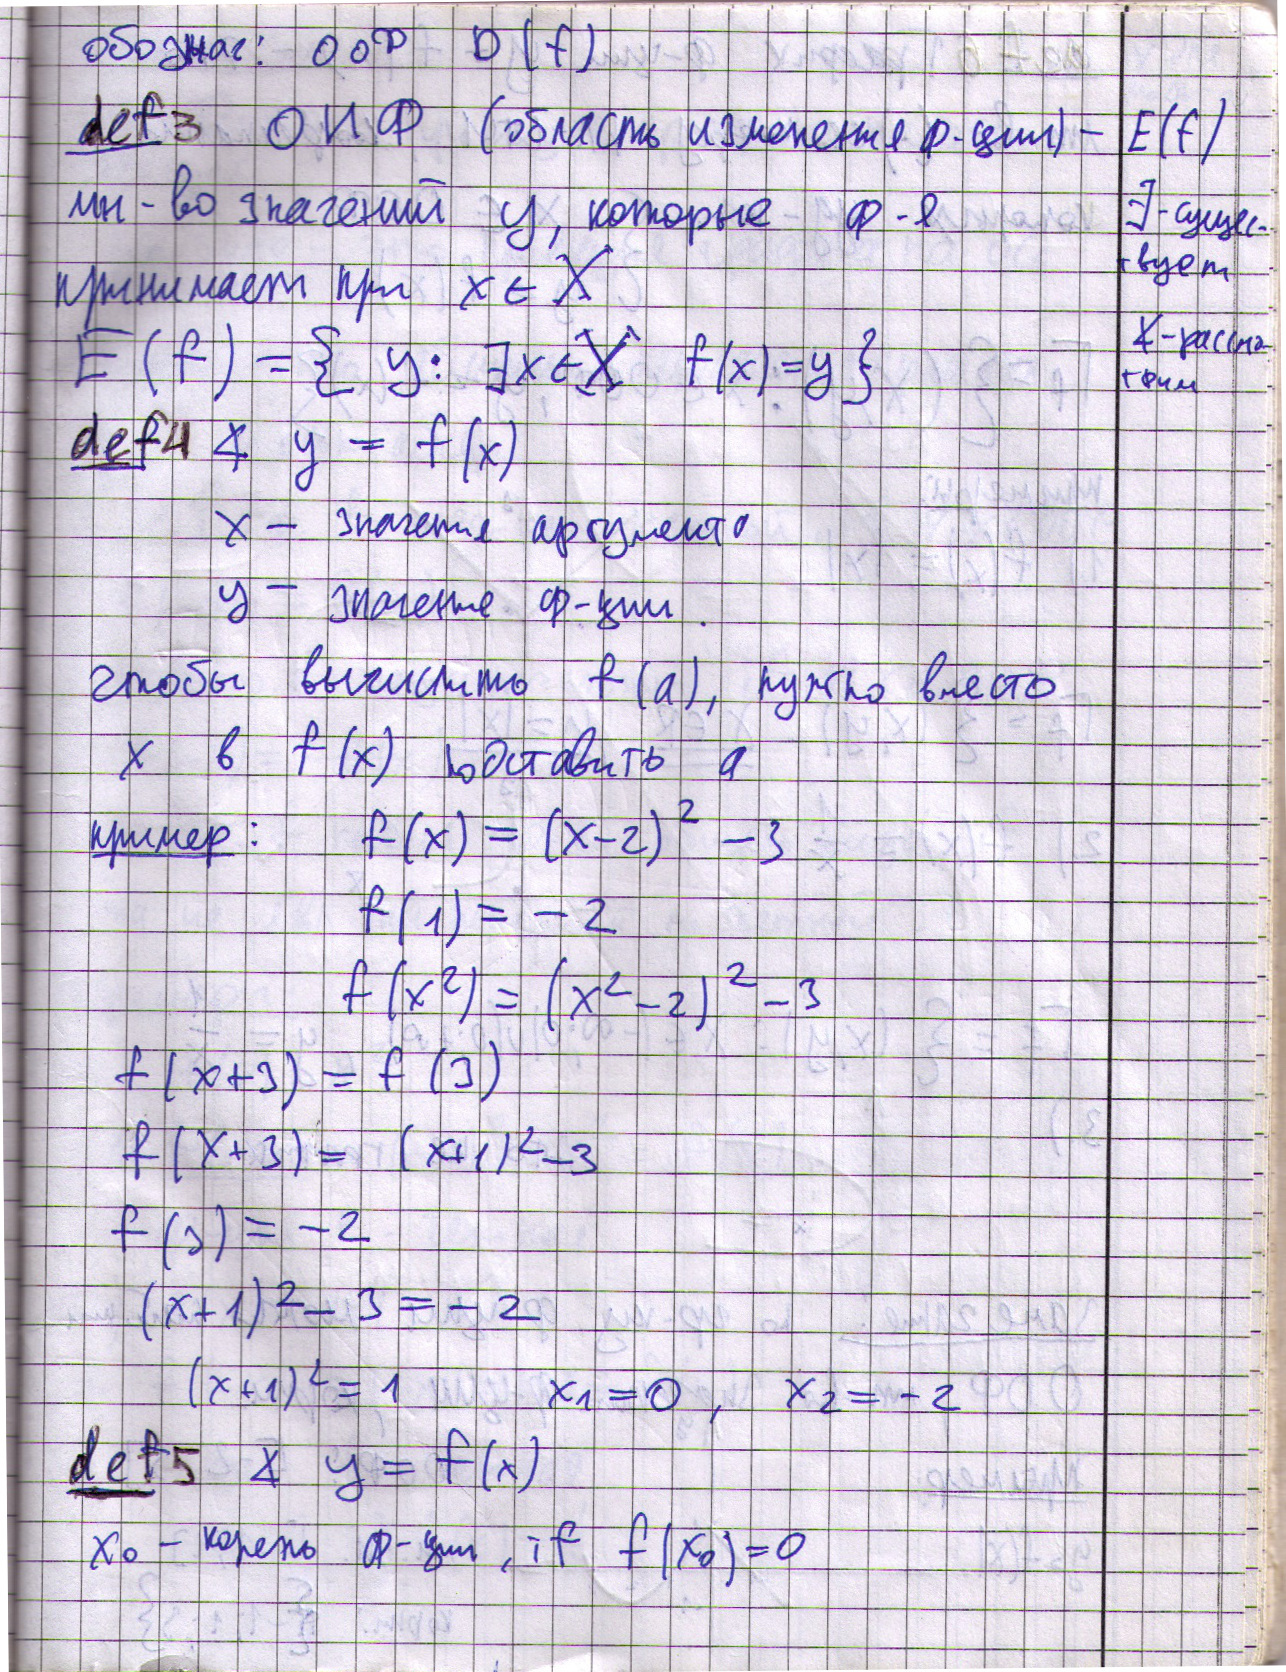 обознач: ООФ D(f)
def3 ОИФ (область изменения ф-ции) – E(f)
мн-во значений y, которые ф-я
принимает при x ∈ X
E(f) = { y: ∃x∈X f(x)=y }
∃-сущес-
твует
∢-рассмо
трим
def4 ∢ y = f(x)
x – значения аргумента
y – значение ф-ции.
чтобы вычислить f(a), нужно вместо
x в f(x) подставить a
пример: f(x) = (x–2)² –3
f(1) = –2
f(x²) = (x²–2)² –3
f(x+3) = f(3)
f(x+3) = (x+1)²–3
f(3) = –2
(x+1)² – 3 = –2
(x+1)² = 1 x₁ = 0, x₂ = –2
def5 ∢ y = f(x)
x₀ – корень ф-ции, if f(x₀)=0